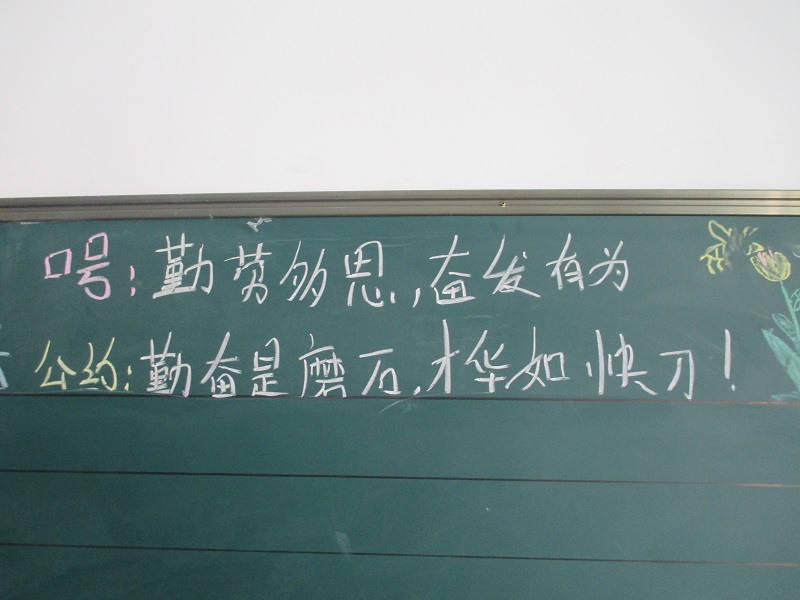 口号:勤劳多思,奋发有为
公约:勤奋是磨石,才华如快刀!